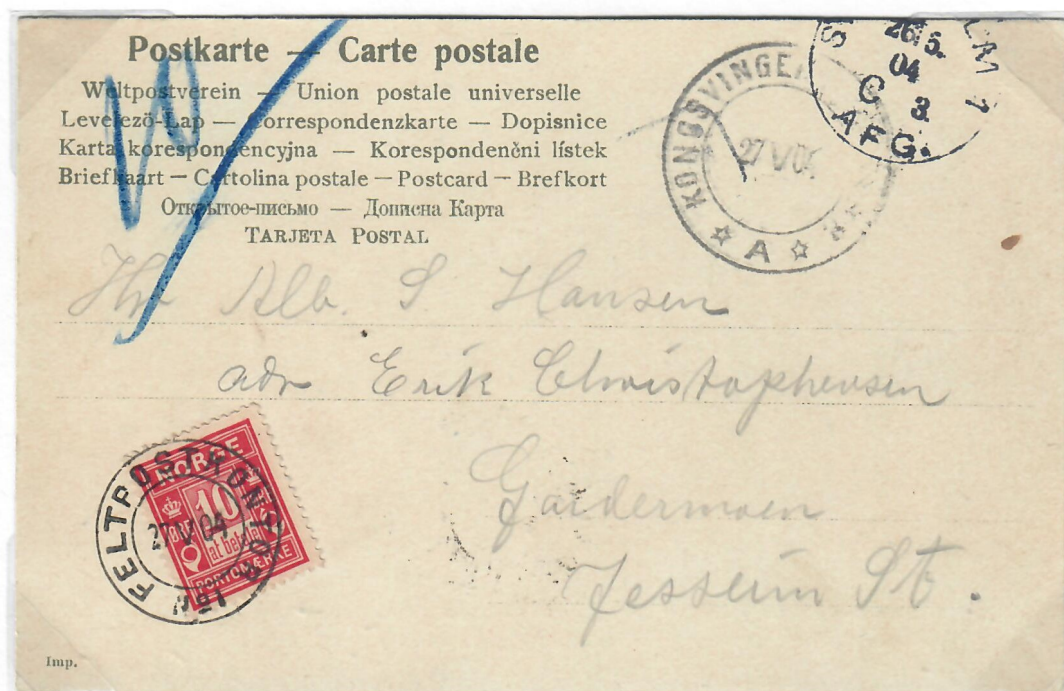 Postkarte — Carte postale
Weltpostverein — Union postale universelle
Levelező-Lap — Correspondenzkarte — Dopisnice
Karta korespondencyjna — Korespondenční lístek
Briefkaart — Cartolina postale — Postcard — Brefkort
Открытое-письмо — Дописна Карта
TARJETA POSTAL
KONGSVINGER
27 V 04
A
26 5.
04
C 3.
AFG.
Hr Alb. S Hansen
adr Erik Christophersen
Gardermoen
Jessum St.
NORGE
10
at betale
PORTOMÆRKE
FELTPOSTKONTOR
27 V 04
Imp.